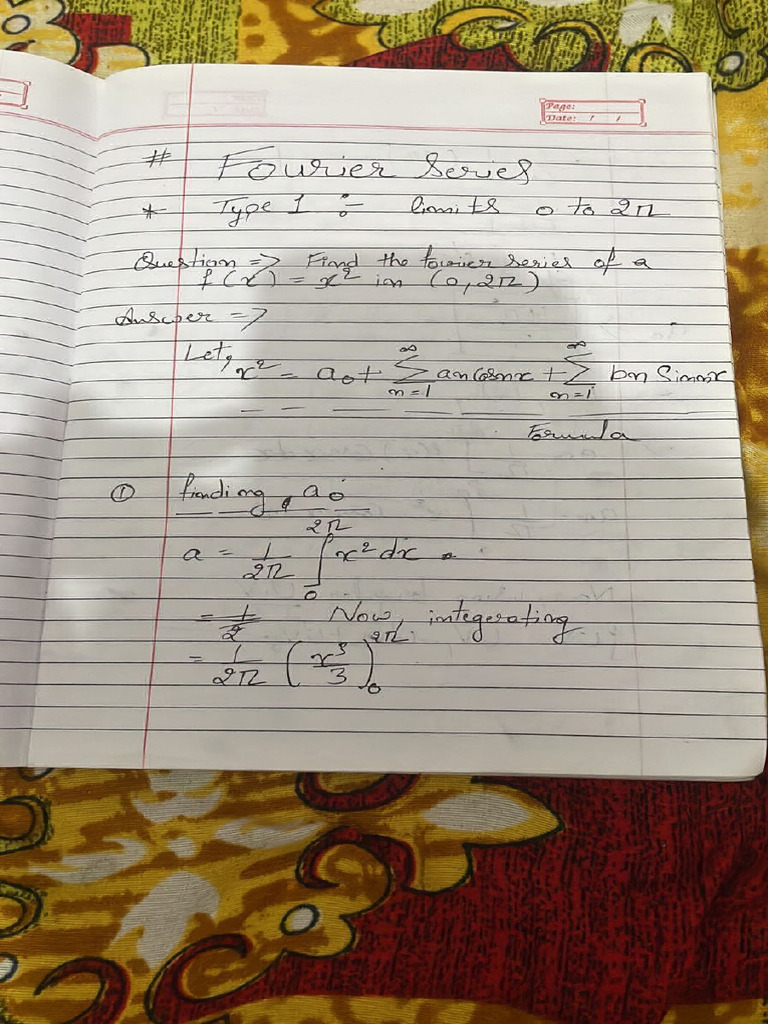 Page:
Date: / /
# Fourier Series
* Type 1 ÷ limits 0 to 2π
Question => Find the fourier series of a
f(x) = x² in (0, 2π)
Answer =>
Let, x² = a₀ + ∞∑n=1 an Cosnx + ∞∑n=1 bn Sinnx
Formula
① finding, a₀
a = 1/2π ∫₀^2π x² dx
= 1/2 Now, integerating
= 1/2π (x³/3)₀^2π